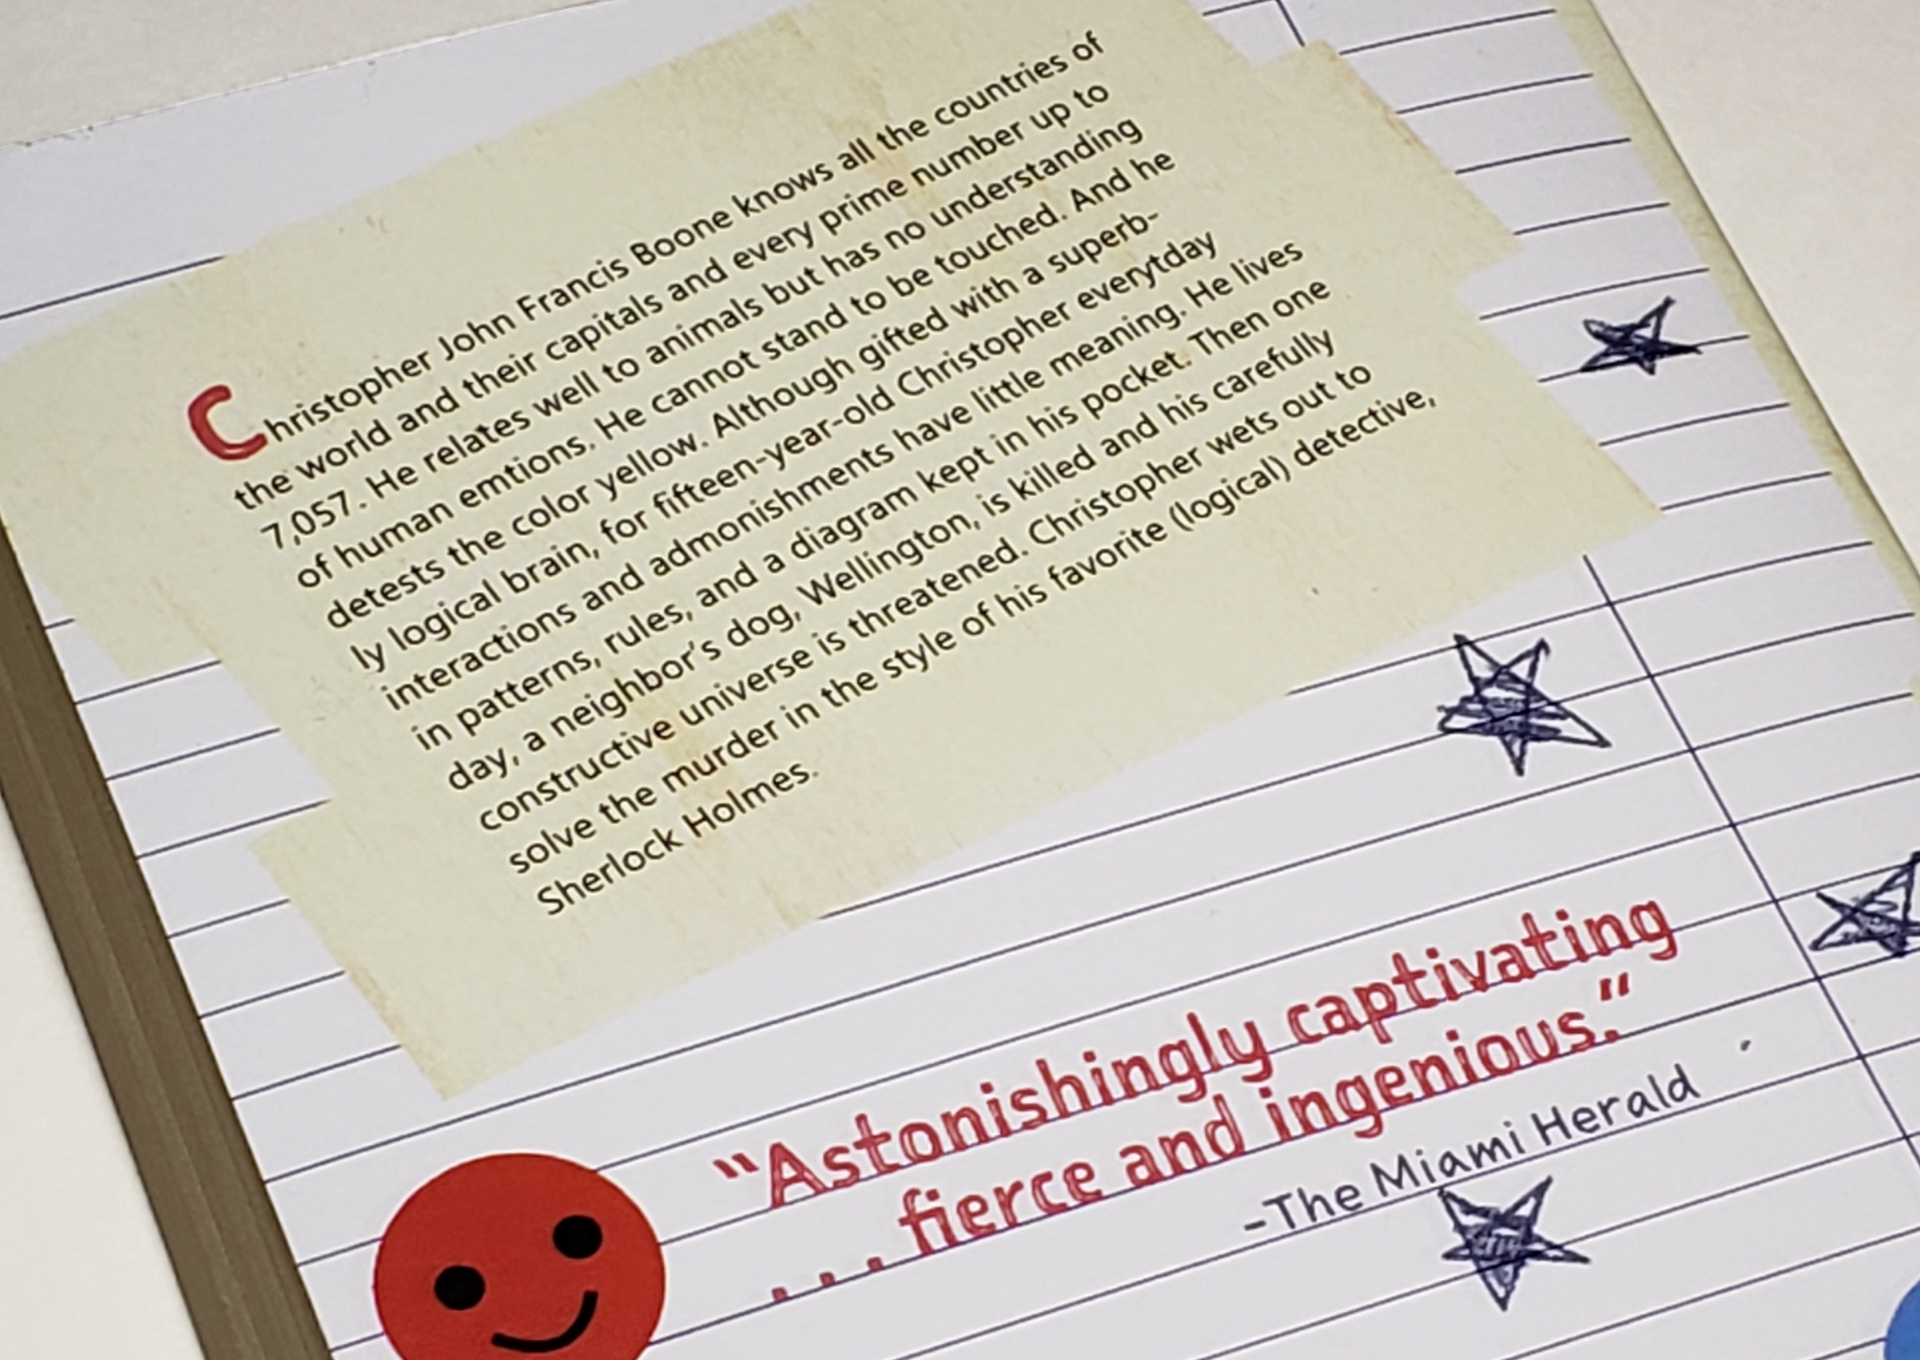 Christopher John Francis Boone knows all the countries of
the world and their capitals and every prime number up to
7,057. He relates well to animals but has no understanding
of human emtions. He cannot stand to be touched. And he
detests the color yellow. Although gifted with a superb-
ly logical brain, for fifteen-year-old Christopher everytday
interactions and admonishments have little meaning. He lives
in patterns, rules, and a diagram kept in his pocket. Then one
day, a neighbor's dog, Wellington, is killed and his carefully
constructive universe is threatened. Christopher wets out to
solve the murder in the style of his favorite (logical) detective,
Sherlock Holmes.
"Astonishingly captivating
. . . fierce and ingenious."
-The Miami Herald